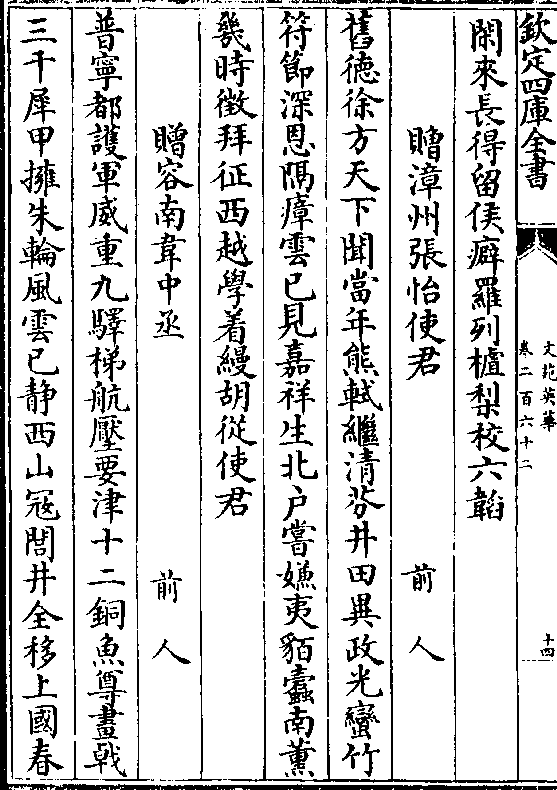 欽定四庫全書
文苑英華
卷二百六十二
十四
閑來長得留侯癖羅列樝梨校六韜
贈漳州張怡使君 前人
舊德徐方天下聞當年熊軾繼清芬井田異政光蠻竹
符節深恩隔瘴雲已見嘉祥生北户嘗嫌夷貊蠧南薰
幾時徵拜征西越學着縵胡從使君
贈容南韋中丞 前人
普寧都護軍威重九驛梯航壓要津十二銅魚尊畫戟
三千犀甲擁朱輪風雲已静西山寇閭井全移上國春